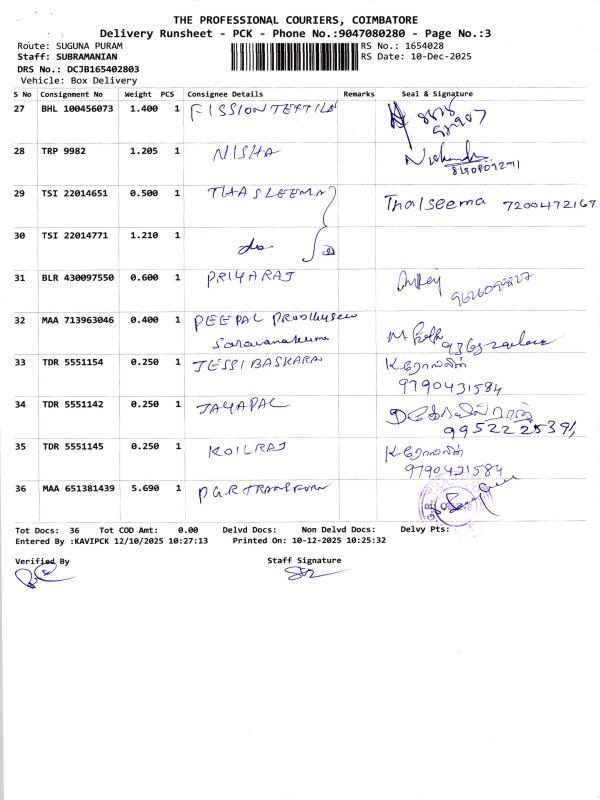 THE PROFESSIONAL COURIERS, COIMBATORE
Delivery Runsheet - PCK - Phone No.:9047080280 - Page No.:3
Route: SUGUNA PURAM RS No.: 1654028
Staff: SUBRAMANIAN RS Date: 10-Dec-2025
DRS No.: DCJB165402803
Vehicle: Box Delivery
S No Consignment No Weight PCS Consignee Details Remarks Seal & Signature
27 BHL 100456073 1.400 1 FISSION TEXTILE
28 TRP 9982 1.205 1 NISHA
29 TSI 22014651 0.500 1 THASLEEMA Thalseema 7200472167
30 TSI 22014771 1.210 1 do
31 BLR 430097550 0.600 1 PRIYARAJ
32 MAA 713963046 0.400 1 PEEPAL
Saravanakumar
33 TDR 5551154 0.250 1 JESSI BASKARAN
9790431584
34 TDR 5551142 0.250 1 JAYAPAL
35 TDR 5551145 0.250 1 KOILRAJ
9790431584
36 MAA 651381439 5.690 1 PGR
Tot Docs: 36 Tot COD Amt: 0.00 Delvd Docs: Non Delvd Docs: Delvy Pts:
Entered By :KAVIPCK 12/10/2025 10:27:13 Printed On: 10-12-2025 10:25:32
Verified By Staff Signature